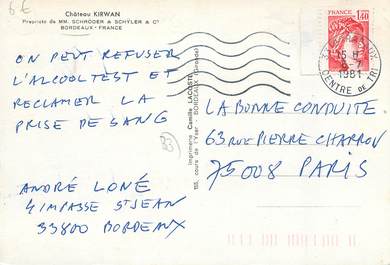 6€
Château KIRWAN
Propriété de MM. SCHRÖDER & SCHŸLER & Cº
BORDEAUX - FRANCE
ON PEUT REFUSER
L'ALCOOLTEST ET
RECLAMER LA
PRISE DE SANG
ANDRÉ LONÉ
4 IMPASSE ST JEAN
33800 BORDEAUX
33
Imprimerie Camille LACOSTE
155, cours de l'Yser - BORDEAUX (Gironde)
FRANCE
1,40
15 H
1981
CENTRE DE TRI
LA BONNE CONDUITE
63 RUE PIERRE CHARRON
75008 PARIS